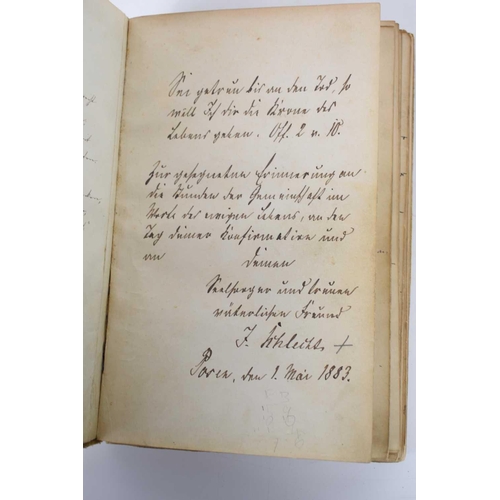 Sei getreu bis an den Tod, so
will Ich dir die Krone des
Lebens geben. Off. 2 v. 10.
Zur gesegneten Erinnerung an
die Stunden der Gemeinschaft im
Worte des ewigen Lebens, an den
Tag deiner Konfirmation und
an deinen
Seelsorger und treuen
väterlichen Freund
J. Schlecht
den 1. Mai 1883.